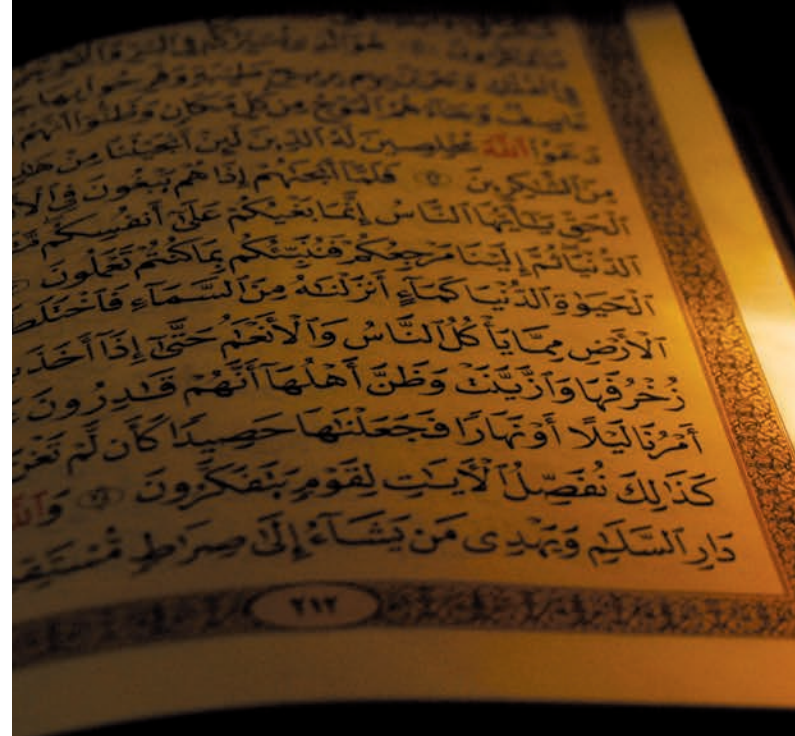 مَا تَمْكُرُونَ هُوَ ٱلَّذِى يُسَيِّرُكُمْ فِى ٱلْبَرِّ وَٱلْبَحْرِ
فِى ٱلْفُلْكِ وَجَرَيْنَ بِهِم بِرِيحٍ طَيِّبَةٍ وَفَرِحُوا۟ بِهَا
عَاصِفٌ وَجَآءَهُمُ ٱلْمَوْجُ مِن كُلِّ مَكَانٍ وَظَنُّوٓا۟ أَنَّهُمْ
دَعَوُا۟ ٱللَّهَ مُخْلِصِينَ لَهُ ٱلدِّينَ لَئِنْ أَنجَيْتَنَا مِنْ
مِنَ ٱلشَّٰكِرِينَ فَلَمَّآ أَنجَىٰهُمْ إِذَا هُمْ يَبْغُونَ فِى
ٱلْحَقِّ يَٰٓأَيُّهَا ٱلنَّاسُ إِنَّمَا بَغْيُكُمْ عَلَىٰٓ أَنفُسِكُم
ٱلدُّنْيَا ثُمَّ إِلَيْنَا مَرْجِعُكُمْ فَنُنَبِّئُكُم بِمَا كُنتُمْ تَعْمَلُونَ
ٱلْحَيَوٰةِ ٱلدُّنْيَا كَمَآءٍ أَنزَلْنَٰهُ مِنَ ٱلسَّمَآءِ فَٱخْتَلَطَ
ٱلْأَرْضِ مِمَّا يَأْكُلُ ٱلنَّاسُ وَٱلْأَنْعَٰمُ حَتَّىٰٓ إِذَآ أَخَذَتِ
زُخْرُفَهَا وَٱزَّيَّنَتْ وَظَنَّ أَهْلُهَآ أَنَّهُمْ قَٰدِرُونَ
أَمْرُنَا لَيْلًا أَوْ نَهَارًا فَجَعَلْنَٰهَا حَصِيدًا كَأَن لَّمْ تَغْنَ
كَذَٰلِكَ نُفَصِّلُ ٱلْءَايَٰتِ لِقَوْمٍ يَتَفَكَّرُونَ وَٱللَّهُ
دَارِ ٱلسَّلَٰمِ وَيَهْدِى مَن يَشَآءُ إِلَىٰ صِرَٰطٍ مُّسْتَقِيمٍ
٢١٢